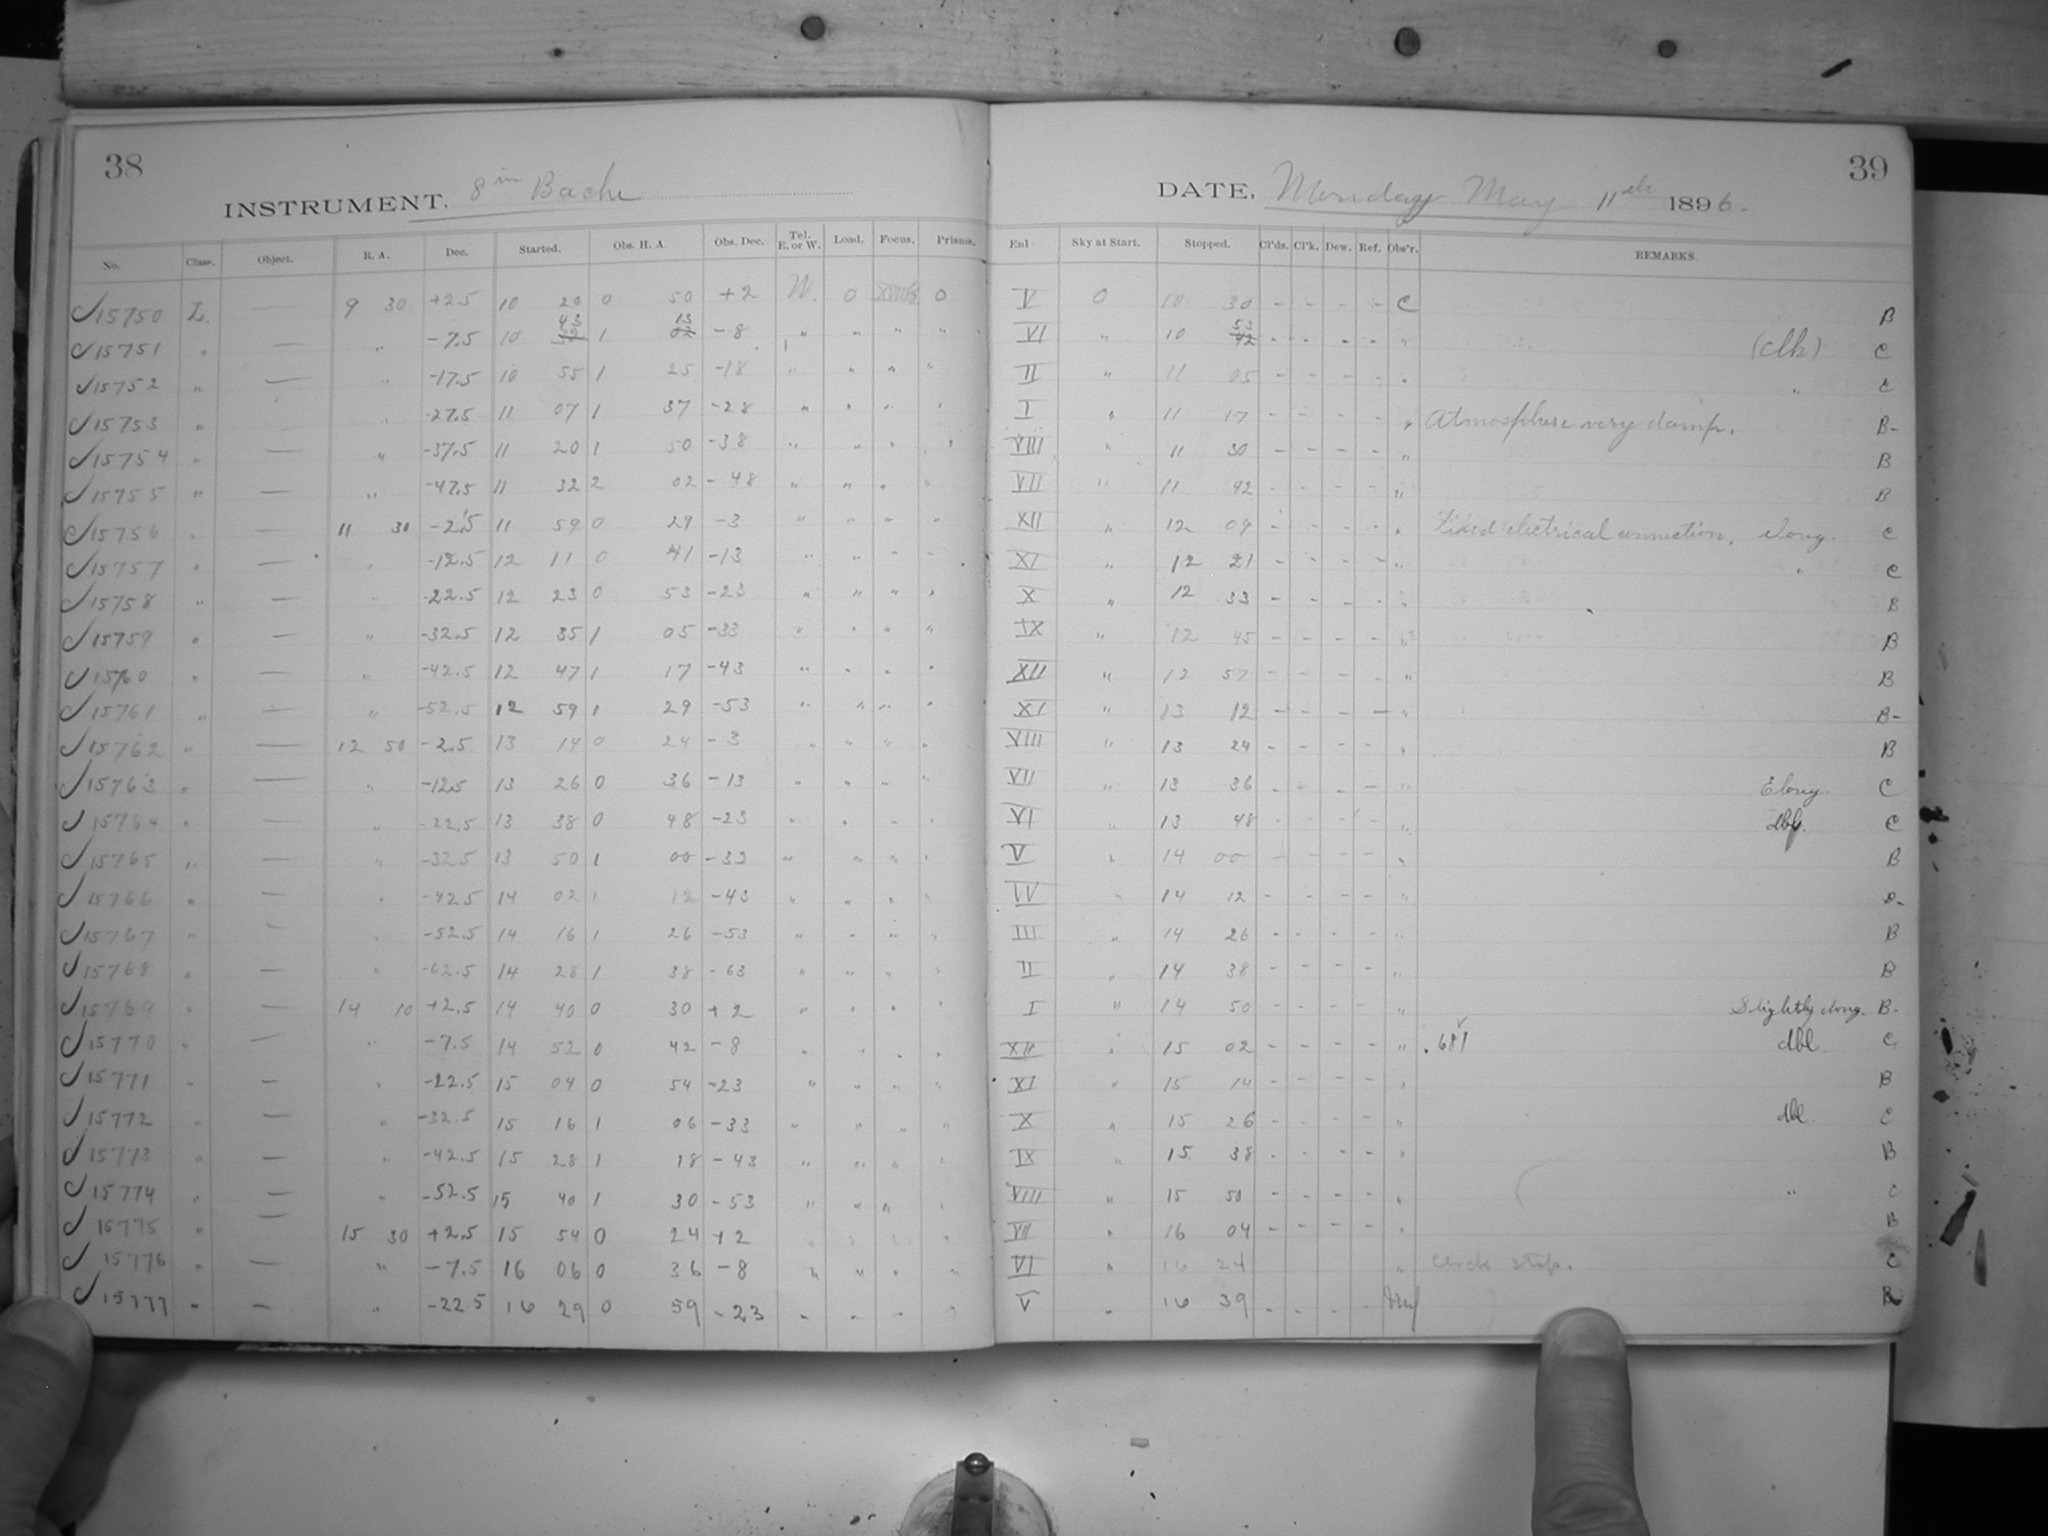 38
INSTRUMENT, 8 in Bache
No. Class. Object. R. A. Dec. Started. Obs. H. A. Obs. Dec. Tel. E. or W. Load. Focus. Prisms.
15750 L. — 9 30 +2.5 10 20 0 50 +2 W. 0 0
43 13
15751 " — " -7.5 10 32 1 02 -8 " " " "
15752 " — " -17.5 10 55 1 25 -18 " " " "
15753 " — " -27.5 11 07 1 37 -28 " " " "
15754 " — " -37.5 11 20 1 50 -38 " " " "
15755 " — " -47.5 11 32 2 02 -48 " " " "
15756 " — 11 30 -2.5 11 59 0 29 -3 " " " "
15757 " — " -12.5 12 11 0 41 -13 " " " "
15758 " — " -22.5 12 23 0 53 -23 " " " "
15759 " — " -32.5 12 35 1 05 -33 " " " "
15760 " — " -42.5 12 47 1 17 -43 " " " "
15761 " — " -52.5 12 59 1 29 -53 " " " "
15762 " — 12 50 -2.5 13 14 0 24 -3 " " " "
15763 " — " -12.5 13 26 0 36 -13 " " " "
15764 " — " -22.5 13 38 0 48 -23 " " " "
15765 " — " -32.5 13 50 1 00 -33 " " " "
15766 " — " -42.5 14 02 1 12 -43 " " " "
15767 " — " -52.5 14 16 1 26 -53 " " " "
15768 " — " -62.5 14 28 1 38 -63 " " " "
15769 " — 14 10 +2.5 14 40 0 30 +2 " " " "
15770 " — " -7.5 14 52 0 42 -8 " " " "
15771 " — " -22.5 15 04 0 54 -23 " " " "
15772 " — " -32.5 15 16 1 06 -33 " " " "
15773 " — " -42.5 15 28 1 18 -43 " " " "
15774 " — " -52.5 15 40 1 30 -53 " " " "
15775 " — 15 30 +2.5 15 54 0 24 +2 " " " "
15776 " — " -7.5 16 06 0 36 -8 " " " "
15777 " — " -22.5 16 29 0 59 -23 " " " "
39
DATE, Monday May 11th 1896.
Enl Sky at Start. Stopped. Cl'ds. Cl'k. Dew. Ref. Obs'r. REMARKS.
V 0 10 30 - - - - C B
53
VI " 10 42 - - - - " (clk) C
II " 11 05 - - - - " " C
I " 11 17 - - - - " Atmosphere very damp. B-
VIII " 11 30 - - - - " B
VII " 11 42 - - - - " B
XII " 12 09 - - - - " Fixed electrical connection, elong. C
XI " 12 21 - - - - " " C
X " 12 33 - - - - " B
IX " 12 45 - - - - " B
XII " 12 57 - - - - " B
XI " 13 12 - - - - " B-
VIII " 13 24 - - - - " B
VII " 13 36 - - - - " Elong. C
VI " 13 48 - - - - " dbl. C
V " 14 00 - - - - " B
IV " 14 12 - - - - "
III " 14 26 - - - - " B
II " 14 38 - - - - " B
I " 14 50 - - - - " Slightly elong. B-
XII " 15 02 - - - - " dbl. C
XI " 15 14 - - - - " B
X " 15 26 - - - - " dbl C
IX " 15 38 - - - - " B
VIII " 15 50 - - - - " " C
VII " 16 04 - - - - " B
VI " 16 24 " Clock stop. C
V " 16 39 - - - - B